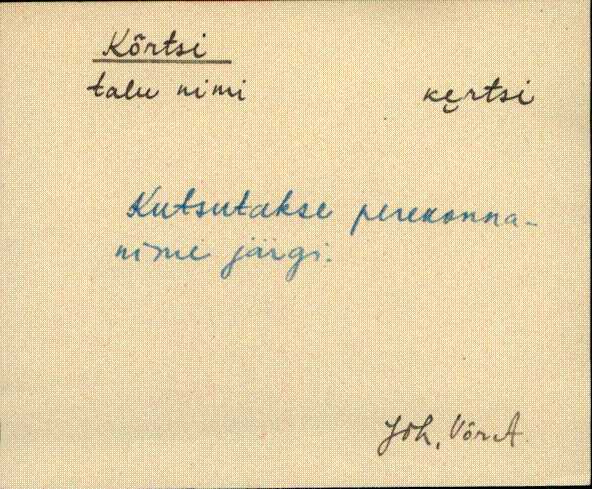 Kõrtsi
talu nimi ke̮rtsi
Kutsutakse perekonna-
nime järgi.
Joh, Võru A.